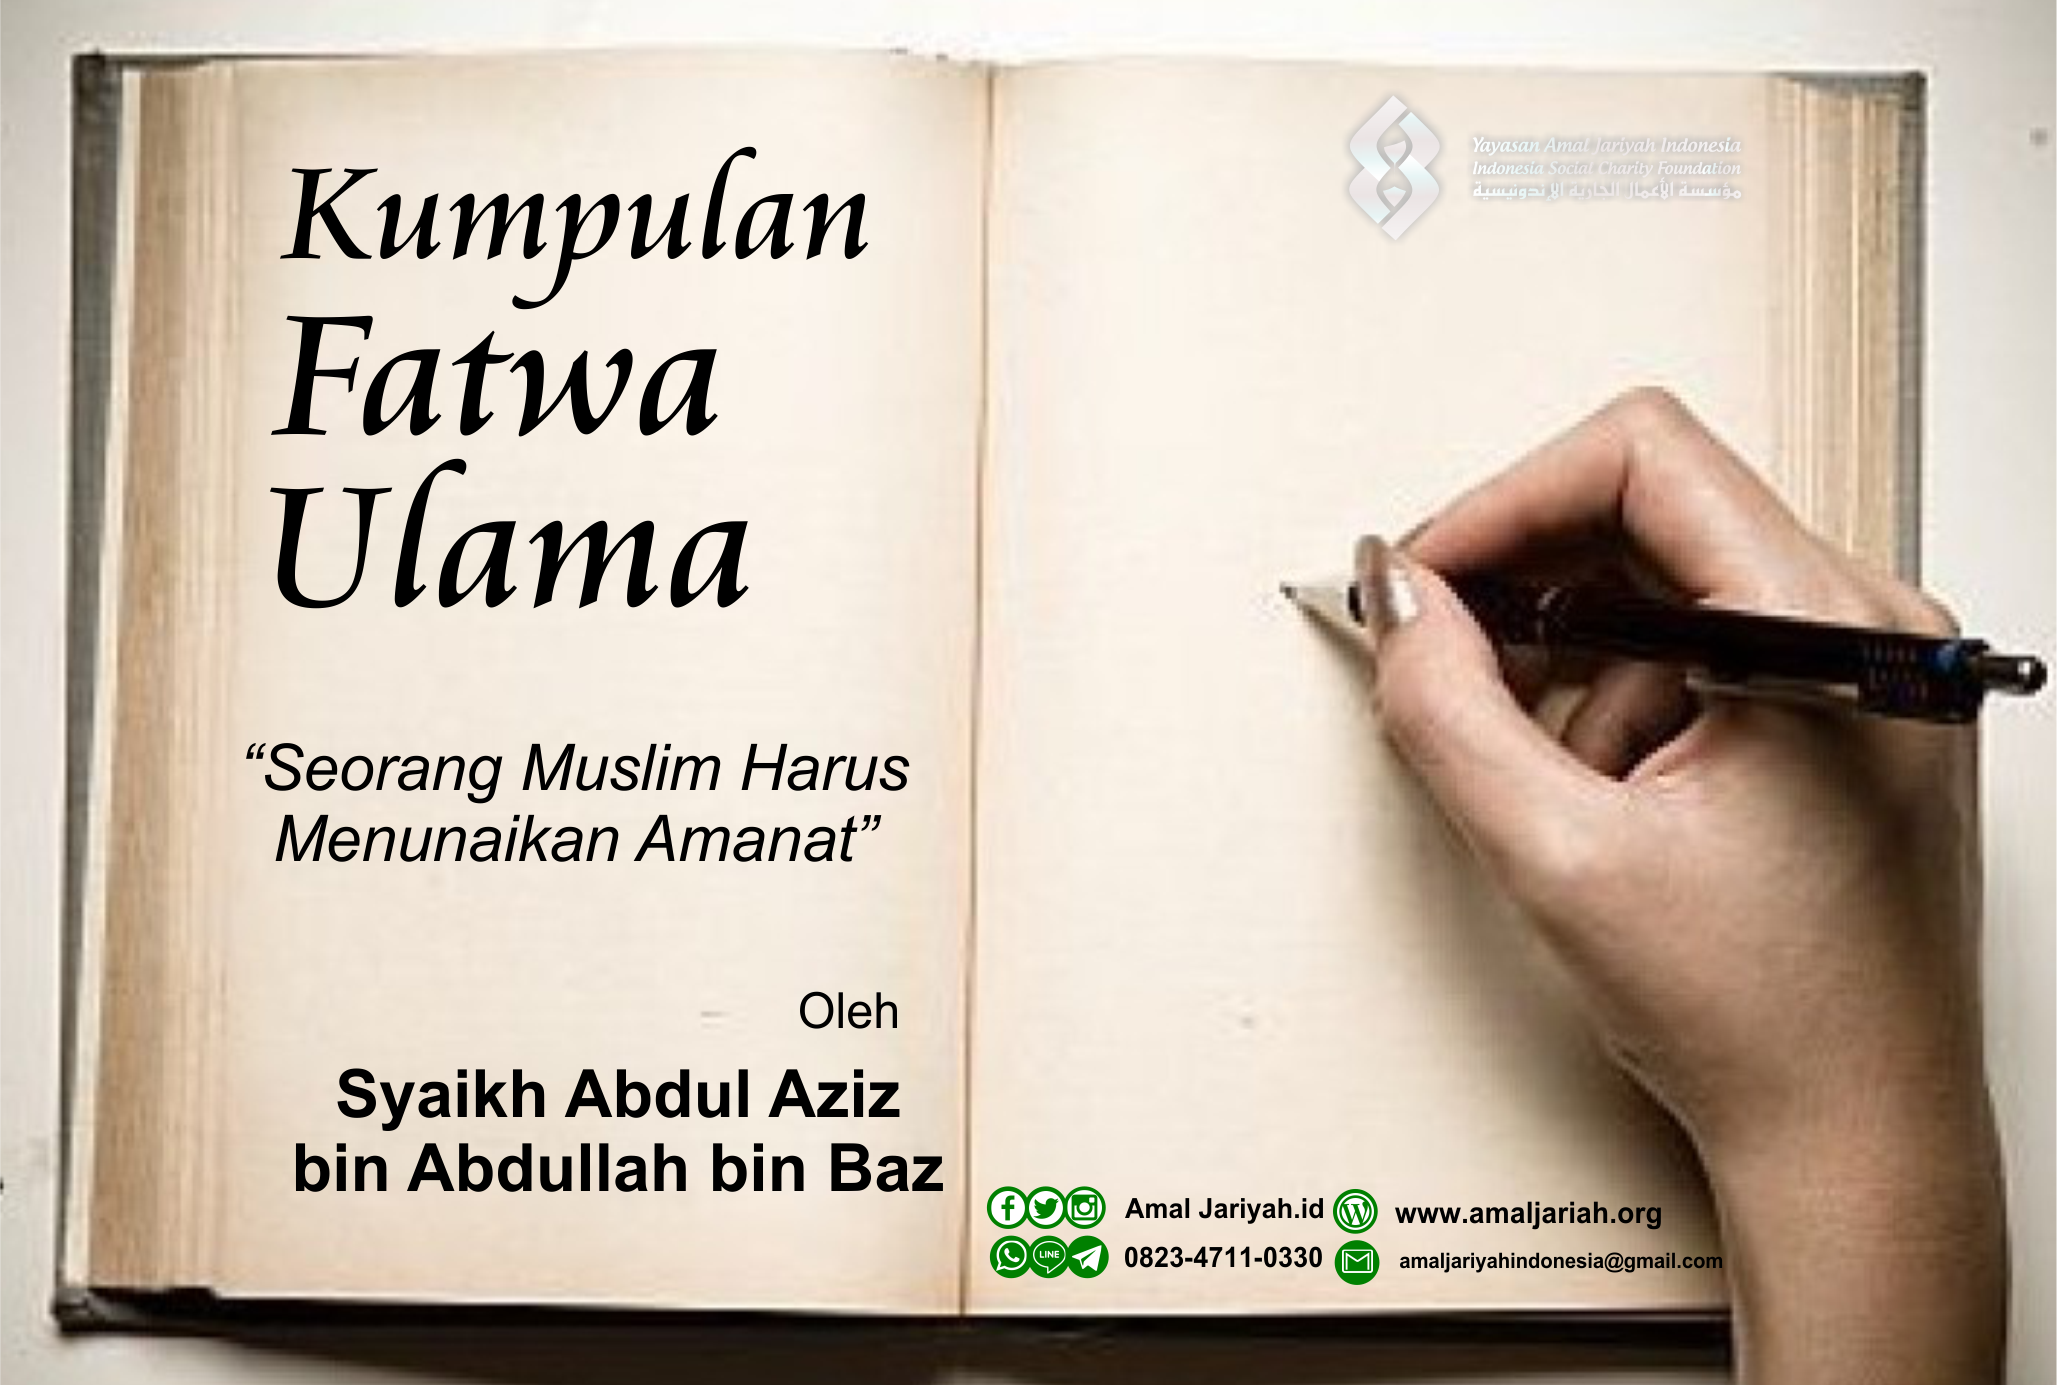 Kumpulan
Fatwa
Ulama
“Seorang Muslim Harus
Menunaikan Amanat”
Oleh
Syaikh Abdul Aziz
bin Abdullah bin Baz
Yayasan Amal Jariyah Indonesia
Indonesia Social Charity Foundation
مؤسسة الأعمال الخارية الإندونيسية
Amal Jariyah.id
www.amaljariah.org
LINE
0823-4711-0330
amaljariyahindonesia@gmail.com